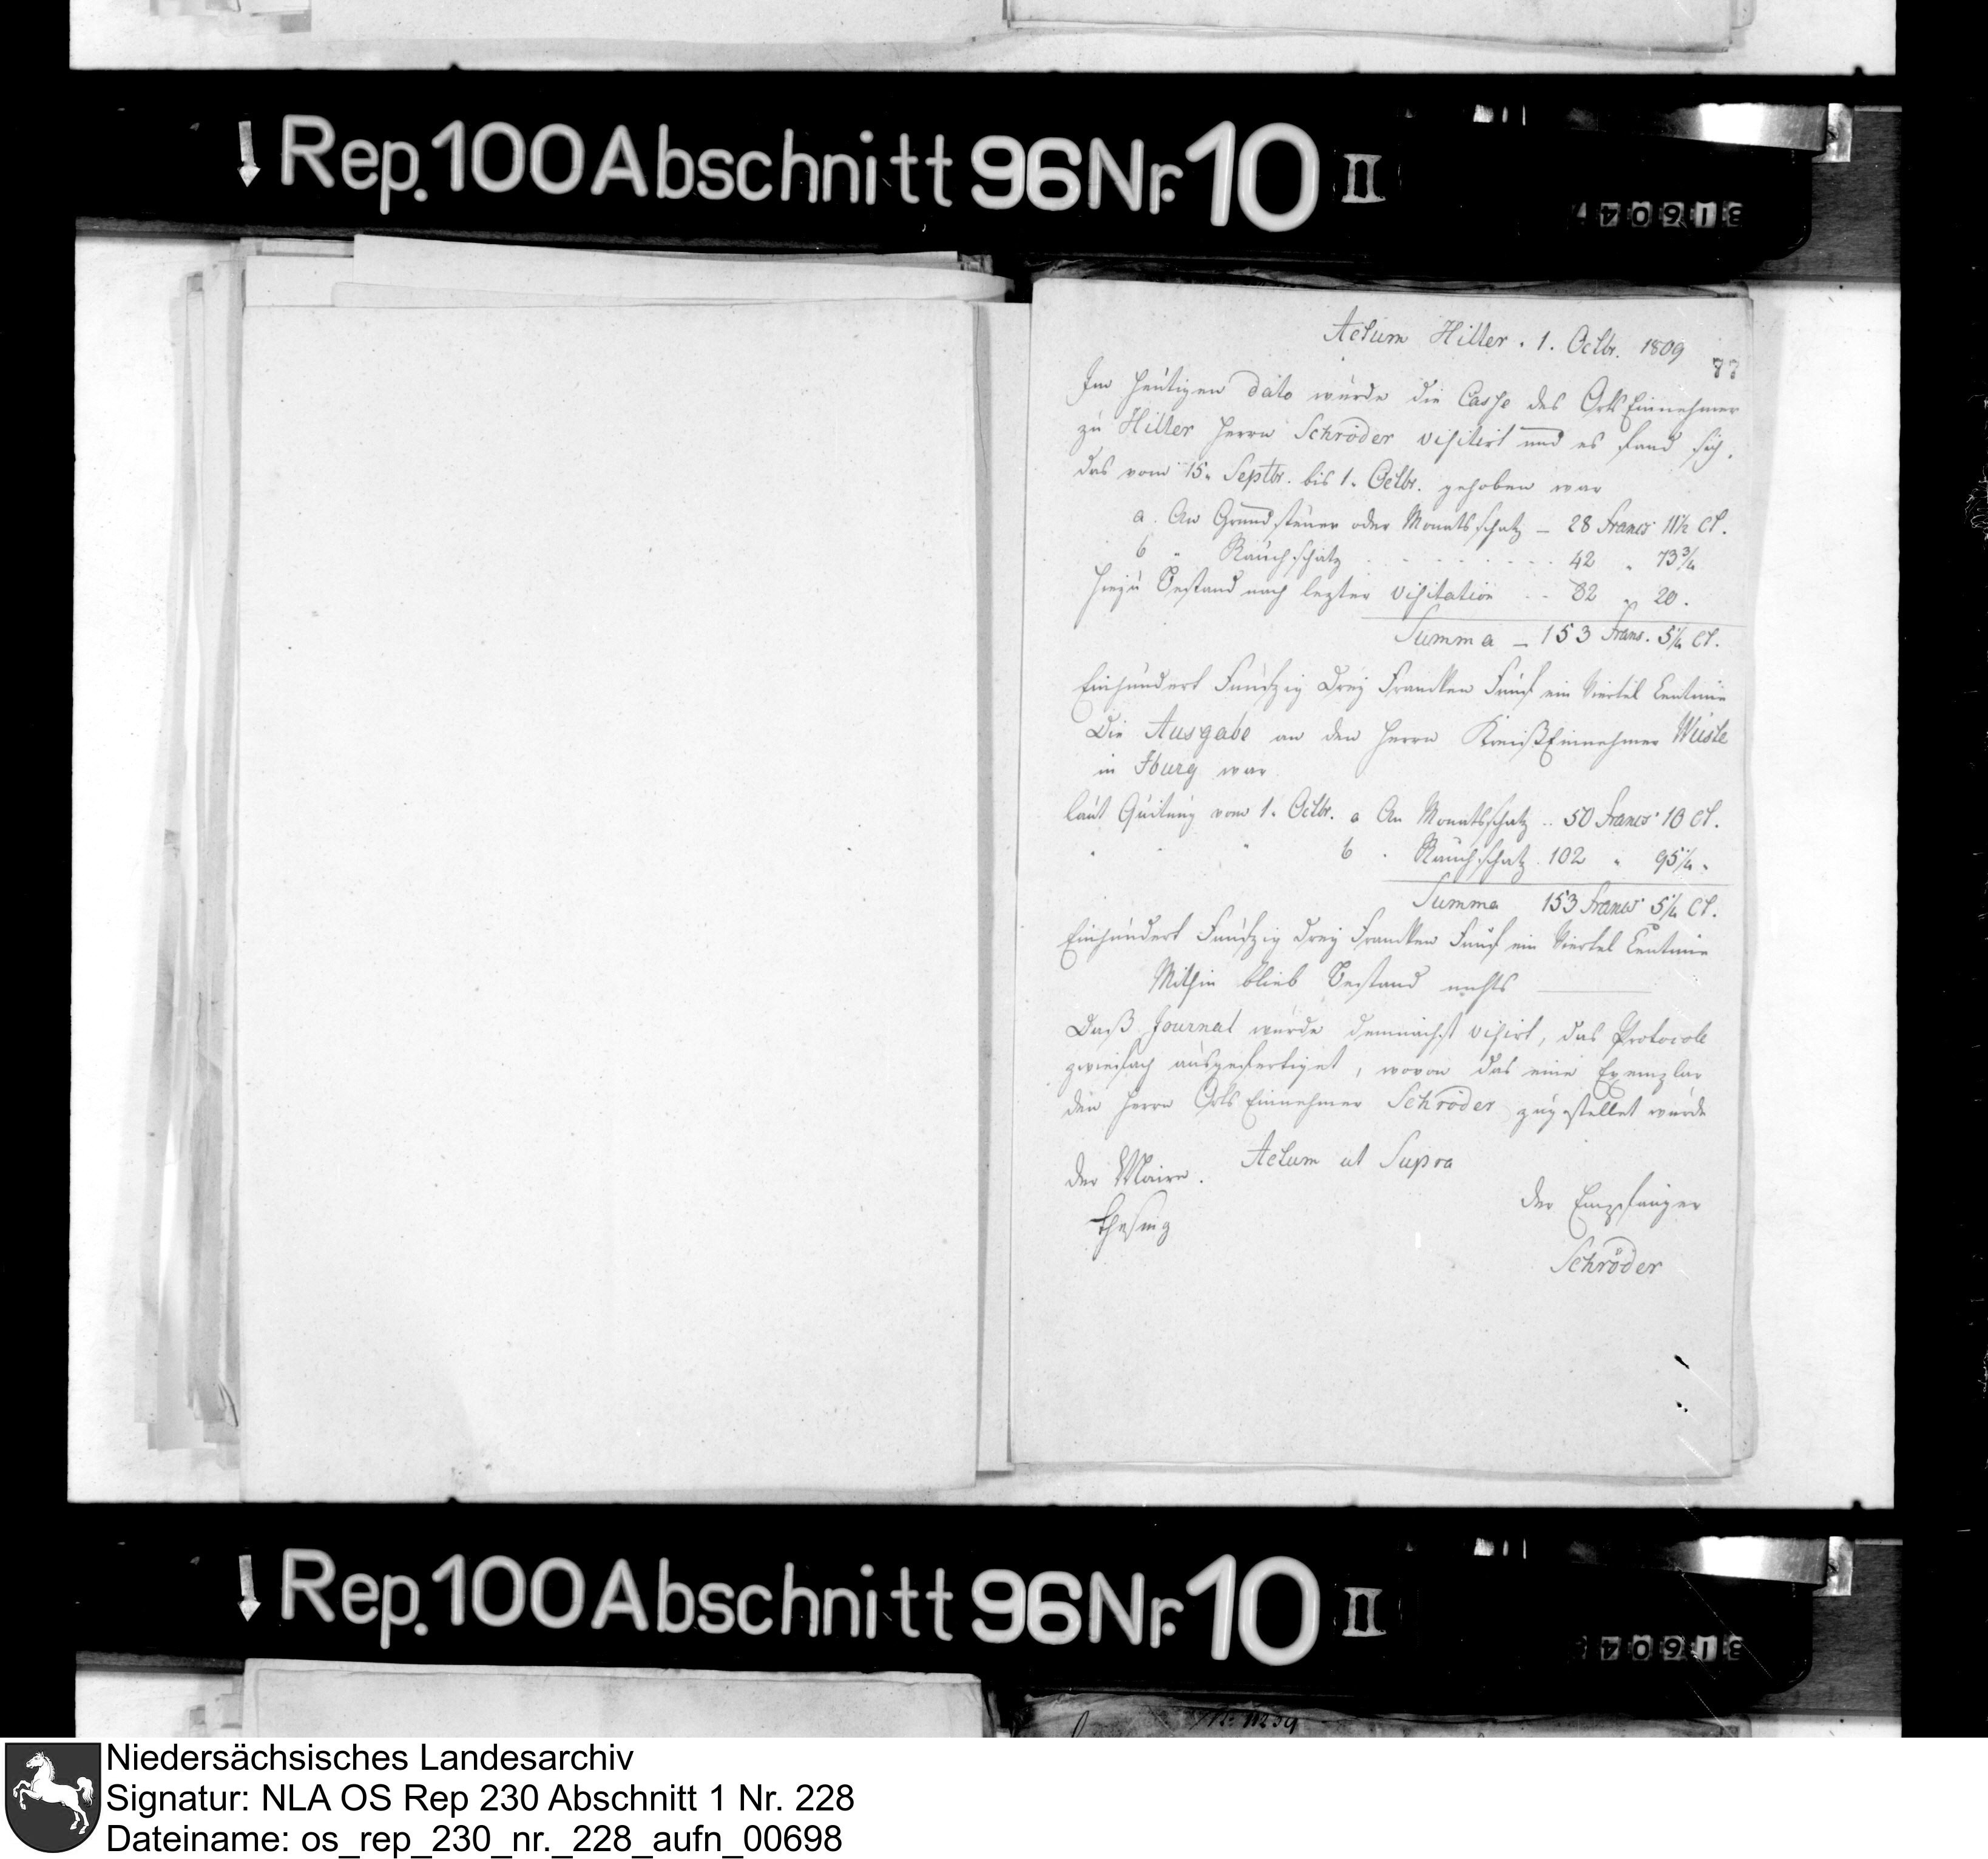 Rep. 100 Abschnitt 96 Nr. 10 II
31604
Actum Hilter . 1. Octbr. 1809
87
Im heutigen dato wurde die Casse des OrtsEinnehmer
zu Hilter Herrn Schröder visitirt und es fand sich,
das vom 15. Septbr. bis 1. Octbr. gehoben war
a. An Grundsteuer oder Monatsschatz – 28 Francs 11½ Ct.
b " Rauchschatz . . . . . . . . 42 " 73¾
Hiezu Bestand nach lezter Visitation . . 82 " 20.
Summa – 153 Frans. 5¼ Ct.
Einhundert Funfzig Drey Francken Funf ein Viertel Centime
Die Ausgabe an den Herrn KreißEinnehmer Wüste
in Iburg war
laut Quitung vom 1. Octbr. a An Monatsschatz .. 50 Francs 10 Ct.
" " b . Rauchschatz . 102 " 95¼ "
Summa 153 Francs 5¼ Ct.
Einhundert Funfzig Drey Francken Funf ein Viertel Centime
Mithin blieb Bestand nichts
Daß Journal wurde demnächst visirt, das Protocoll
zweifach ausgefertiget, wovon das eine Exemplar
den Herrn Orts Einnehmer Schröder zugestellet wurde
Actum ut Supra
der Maire.
der Empfänger
Schröder
Rep. 100 Abschnitt 96 Nr. 10 II
31604
Niedersächsisches Landesarchiv
Signatur: NLA OS Rep 230 Abschnitt 1 Nr. 228
Dateiname: os_rep_230_nr._228_aufn_00698